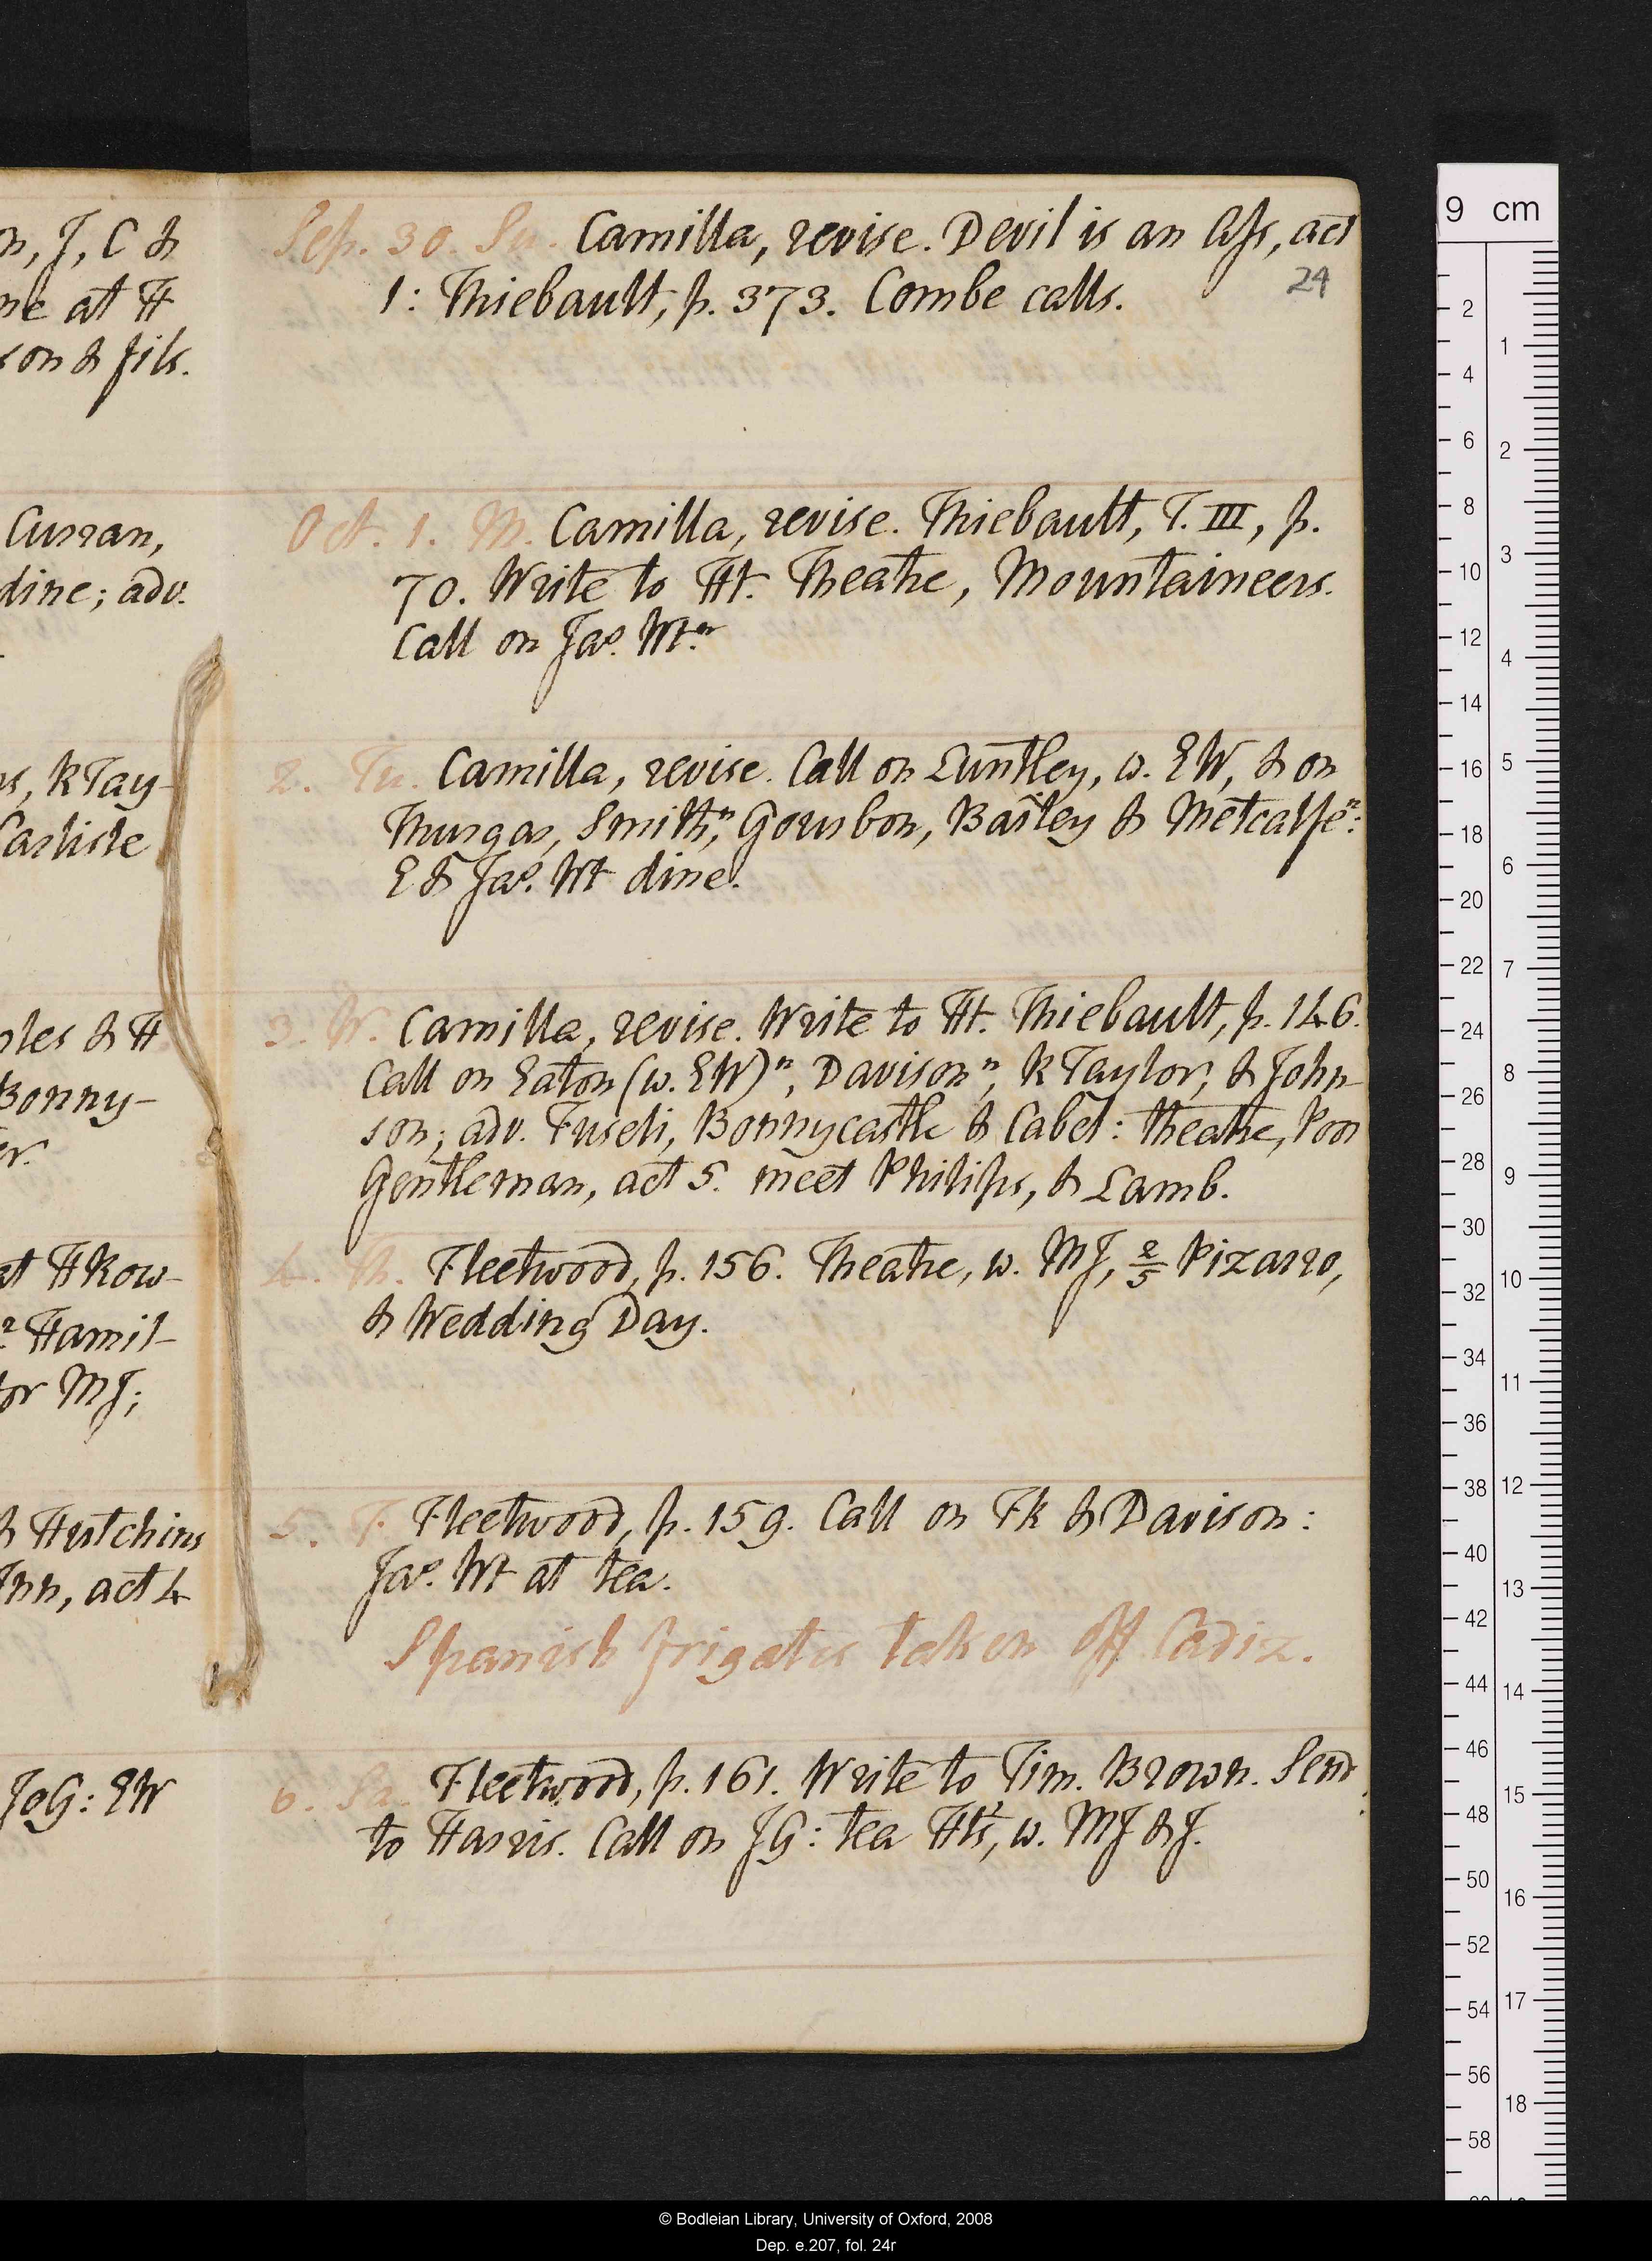 n, J, C &
ne at H
son & fils.
Curran,
dine; adv.
rs, R Tay-
Carlisle
ples & H
Bonny-
er.
at H Row-
r Hamil-
for MJ;
& Hutchins
Inn, act 4
JoG: EW
Sep. 30. Su. Camilla, revise. Devil is an Ass, act
24
1: Thiebault, p. 373. Combe calls.
Oct. 1. M. Camilla, revise. Thiebault, T. III, p.
70. Write to Ht. Theatre, Mountaineers.
Call on Jas. Wtn
2. Tu. Camilla, revise. Call on Luntley, w. EW, & on
Thurgar, Smith n, Gourbon, Bailey & Metcalfe n:
E & Jas. Wt dine.
3. W. Camilla, revise. Write to Ht. Thiebault, p. 146.
Call on Eaton (w. EW) n, Davison n, R Taylor, & John-
son; adv. Fuseli, Bonnycastle & Cabel: theatre, Poor
Gentleman, act 5. meet Philips, & Lamb.
4. Th. Fleetwood, p. 156. Theatre, w. MJ, 2/5 Pizarro,
& Wedding Day.
5. F. Fleetwood, p. 159. Call on Fk & Davison:
Jas. Wt at tea.
Spanish frigates taken off Cadiz.
6. Sa. Fleetwood, p. 161. Write to Tim. Brown. Send
to Harris. Call on JG: tea Ht's, w. MJ & J.
9 cm
2
4
6
8
10
12
14
16
18
20
22
24
26
28
30
32
34
36
38
40
42
44
46
48
50
52
54
56
58
1
2
3
4
5
6
7
8
9
10
11
12
13
14
15
16
17
18
© Bodleian Library, University of Oxford, 2008
Dep. e.207, fol. 24r